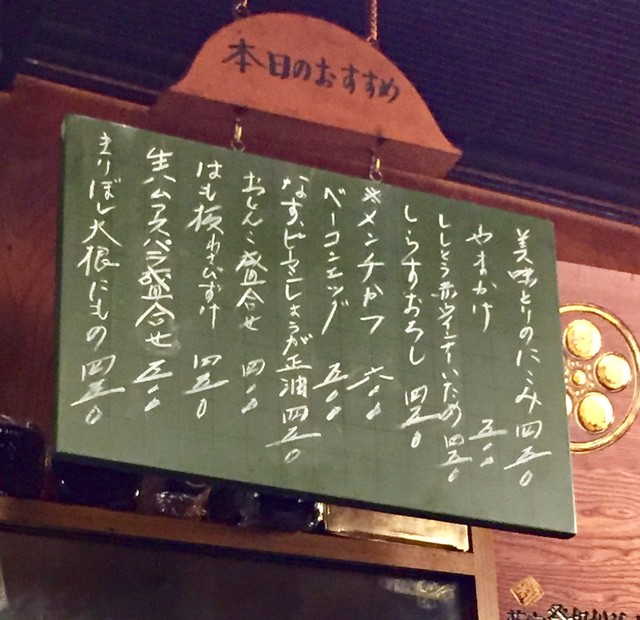 本日のおすすめ
美味とりのにこみ 四五〇
やまかけ 五〇〇
ししとう赤ウインナーいため 四五〇
しらすおろし 四五〇
※メンチかつ 六〇〇
ベーコンエッグ 五〇〇
なす、ピーマンしょうが正油 四五〇
おしんこ盛合せ 四〇〇
はも板わさびずけ 四五〇
生ハムアスパラ盛合せ 五〇〇
きりぼし大根にもの 四五〇